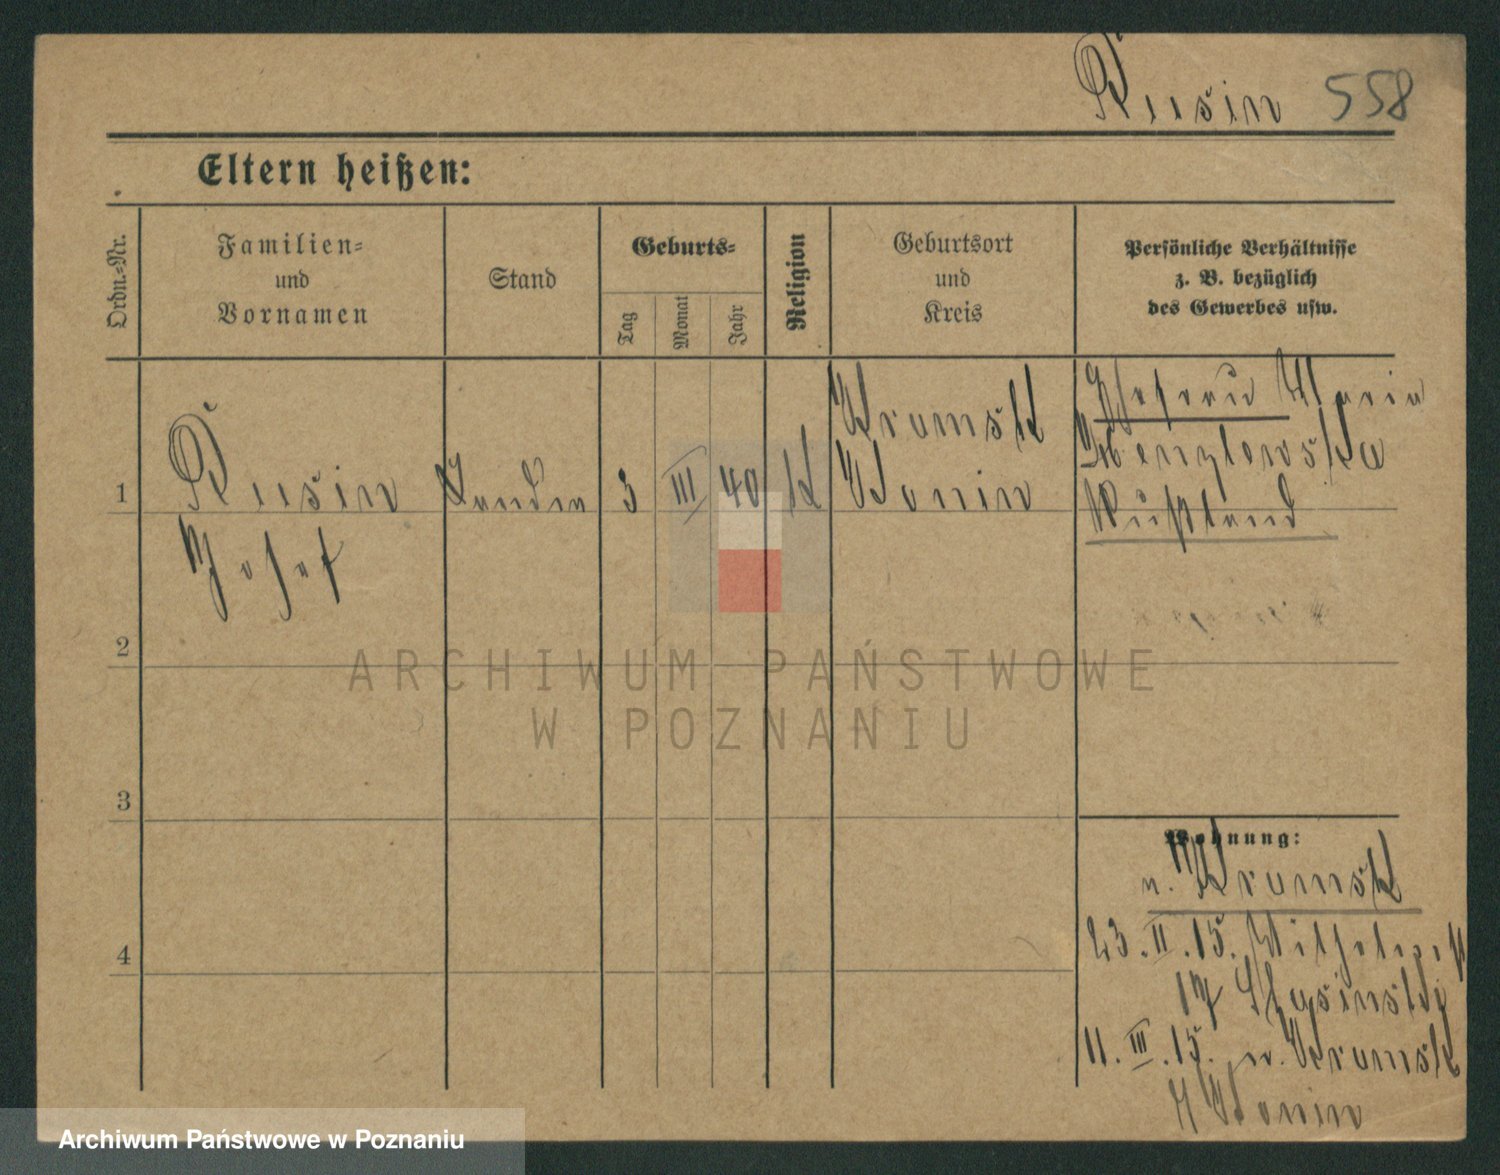 Rusin 558
Eltern heißen:
Ordn.-Nr.
Familien-
und
Vornamen
Stand
Geburts-
Tag
Monat
Jahr
Religion
Geburtsort
und
Kreis
Persönliche Verhältnisse
z. B. bezüglich
des Gewerbes usw.
1
Rusin
Josef
3 III 40 K
Kramsk
Konin
Ehefrau Maria
Rußland
2
3
4
Wohnung:
n. Kramsk
23. II. 15.
17
11. III. 15. n. Kramsk
Konin
ARCHIWUM PAŃSTWOWE
W POZNANIU
Archiwum Państwowe w Poznaniu